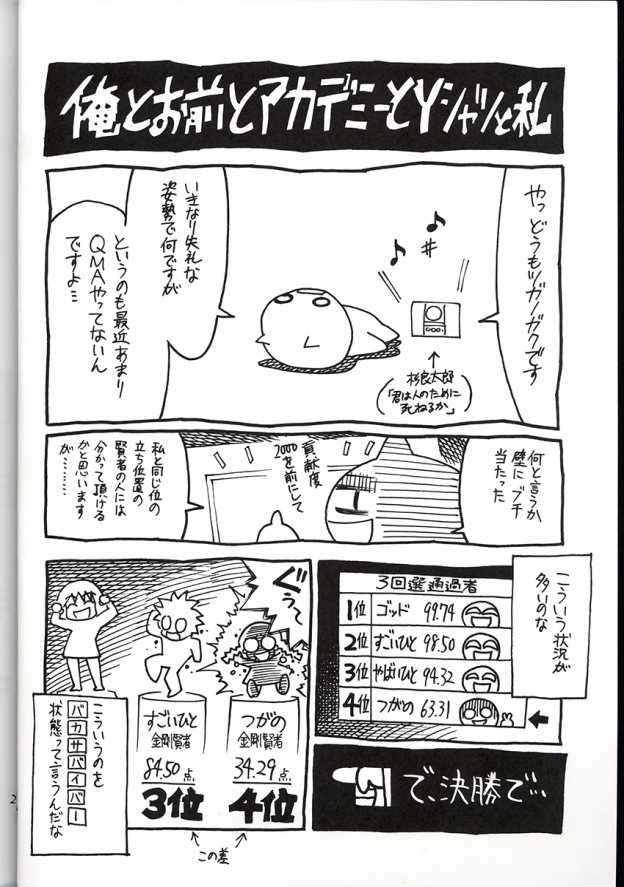 俺とお前とアカデミーとYシャツと私
やっどうもツガノガクです
杉良太郎
「君は人のために
死ねるか」
いきなり失礼な
姿勢で何ですが
というのも最近あまり
QMAやってないん
ですよ…
何と言うか
壁にブチ
当たった
貢献度
2000
を前にして
私と同じ位の
立ち位置の
賢者の人には
分かって頂ける
かと思います
が………
こういう状況が
多いのな
3回選通過者
1位 ゴッド 99.74
2位 すごいひと 98.50
3位 やばいひと 94.32
4位 つがの 63.31
で、決勝で…
ぐぅ〜
つがの
金剛賢者
34.29点
4位
すごいひと
金剛賢者
84.50点
3位
この差
こういうのを
バカサバイバー
状態って言うんだな
2